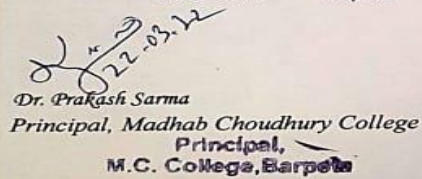 22.03.22
Dr. Prakash Sarma
Principal, Madhab Choudhury College
Principal,
M.C. College, Barpeta